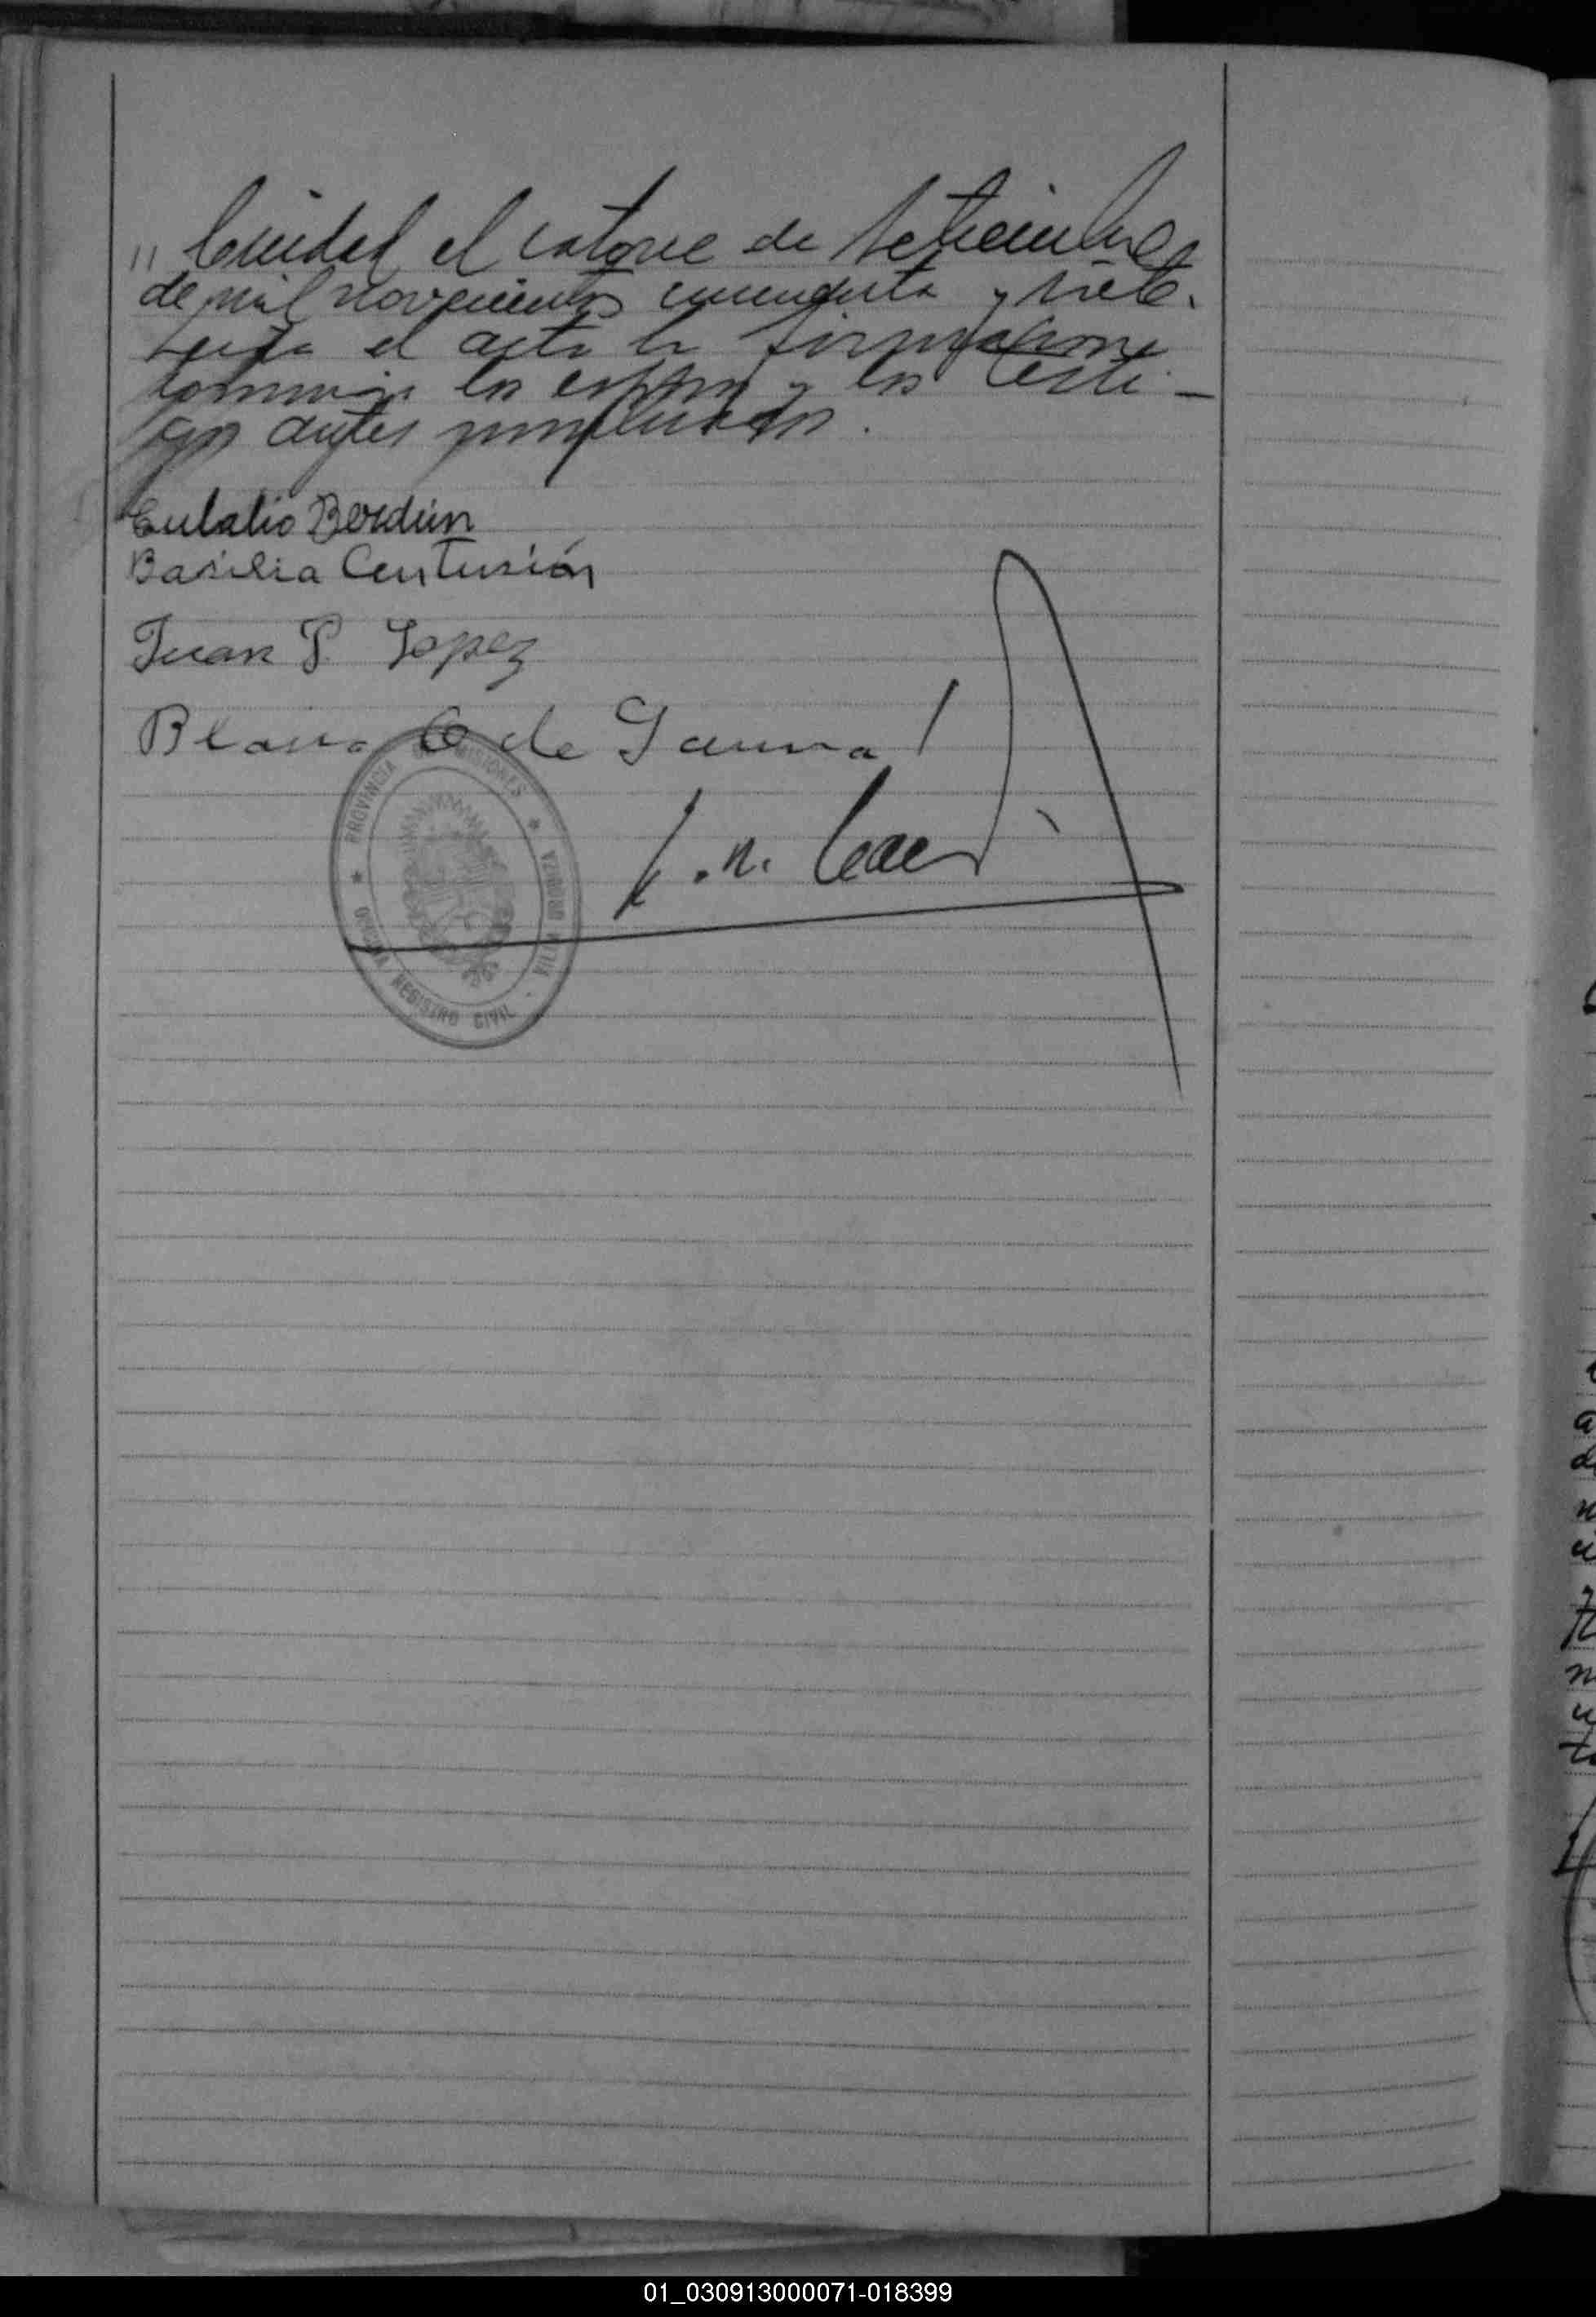 " Ciudad el catorce de Setiembre
de mil novecientos cincuenta y siete.
Leida el acta la firmaron
conmigo los esposos y los testi-
gos antes nombrados.
Eulalio Berdún
Basilia Centurión
Juan P. Lopez
Blanca C de Gauna
PROVINCIA DE MISIONES
REGISTRO CIVIL
01_030913000071-018399